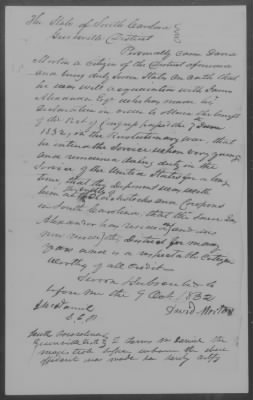 The State of South Carolina
Greenville District
Personally came David
Morton a citizen of the District aforesaid
and being duly sworn states on oath that
he was well acquainted with James
Alexander Esqr who has made his
declaration in order to obtain the benefit
of the Act of Congress passed the 7 June
1832, in the Revolutionary war that
he entered the Service when very young
and remained doing duty in the
Service of the United States for a long
time, that this deponent was with
him at
in South Carolina, that the Said
Alexander has resided and is
now in District for many
years and is a respectable Citizen
Worthy of all Credit
Sworn & Subscribed to
before me the 9 Oct. 1832
David Morton
South Carolina
Greenville District
magistrate before whom the above
affidavit was made do hereby